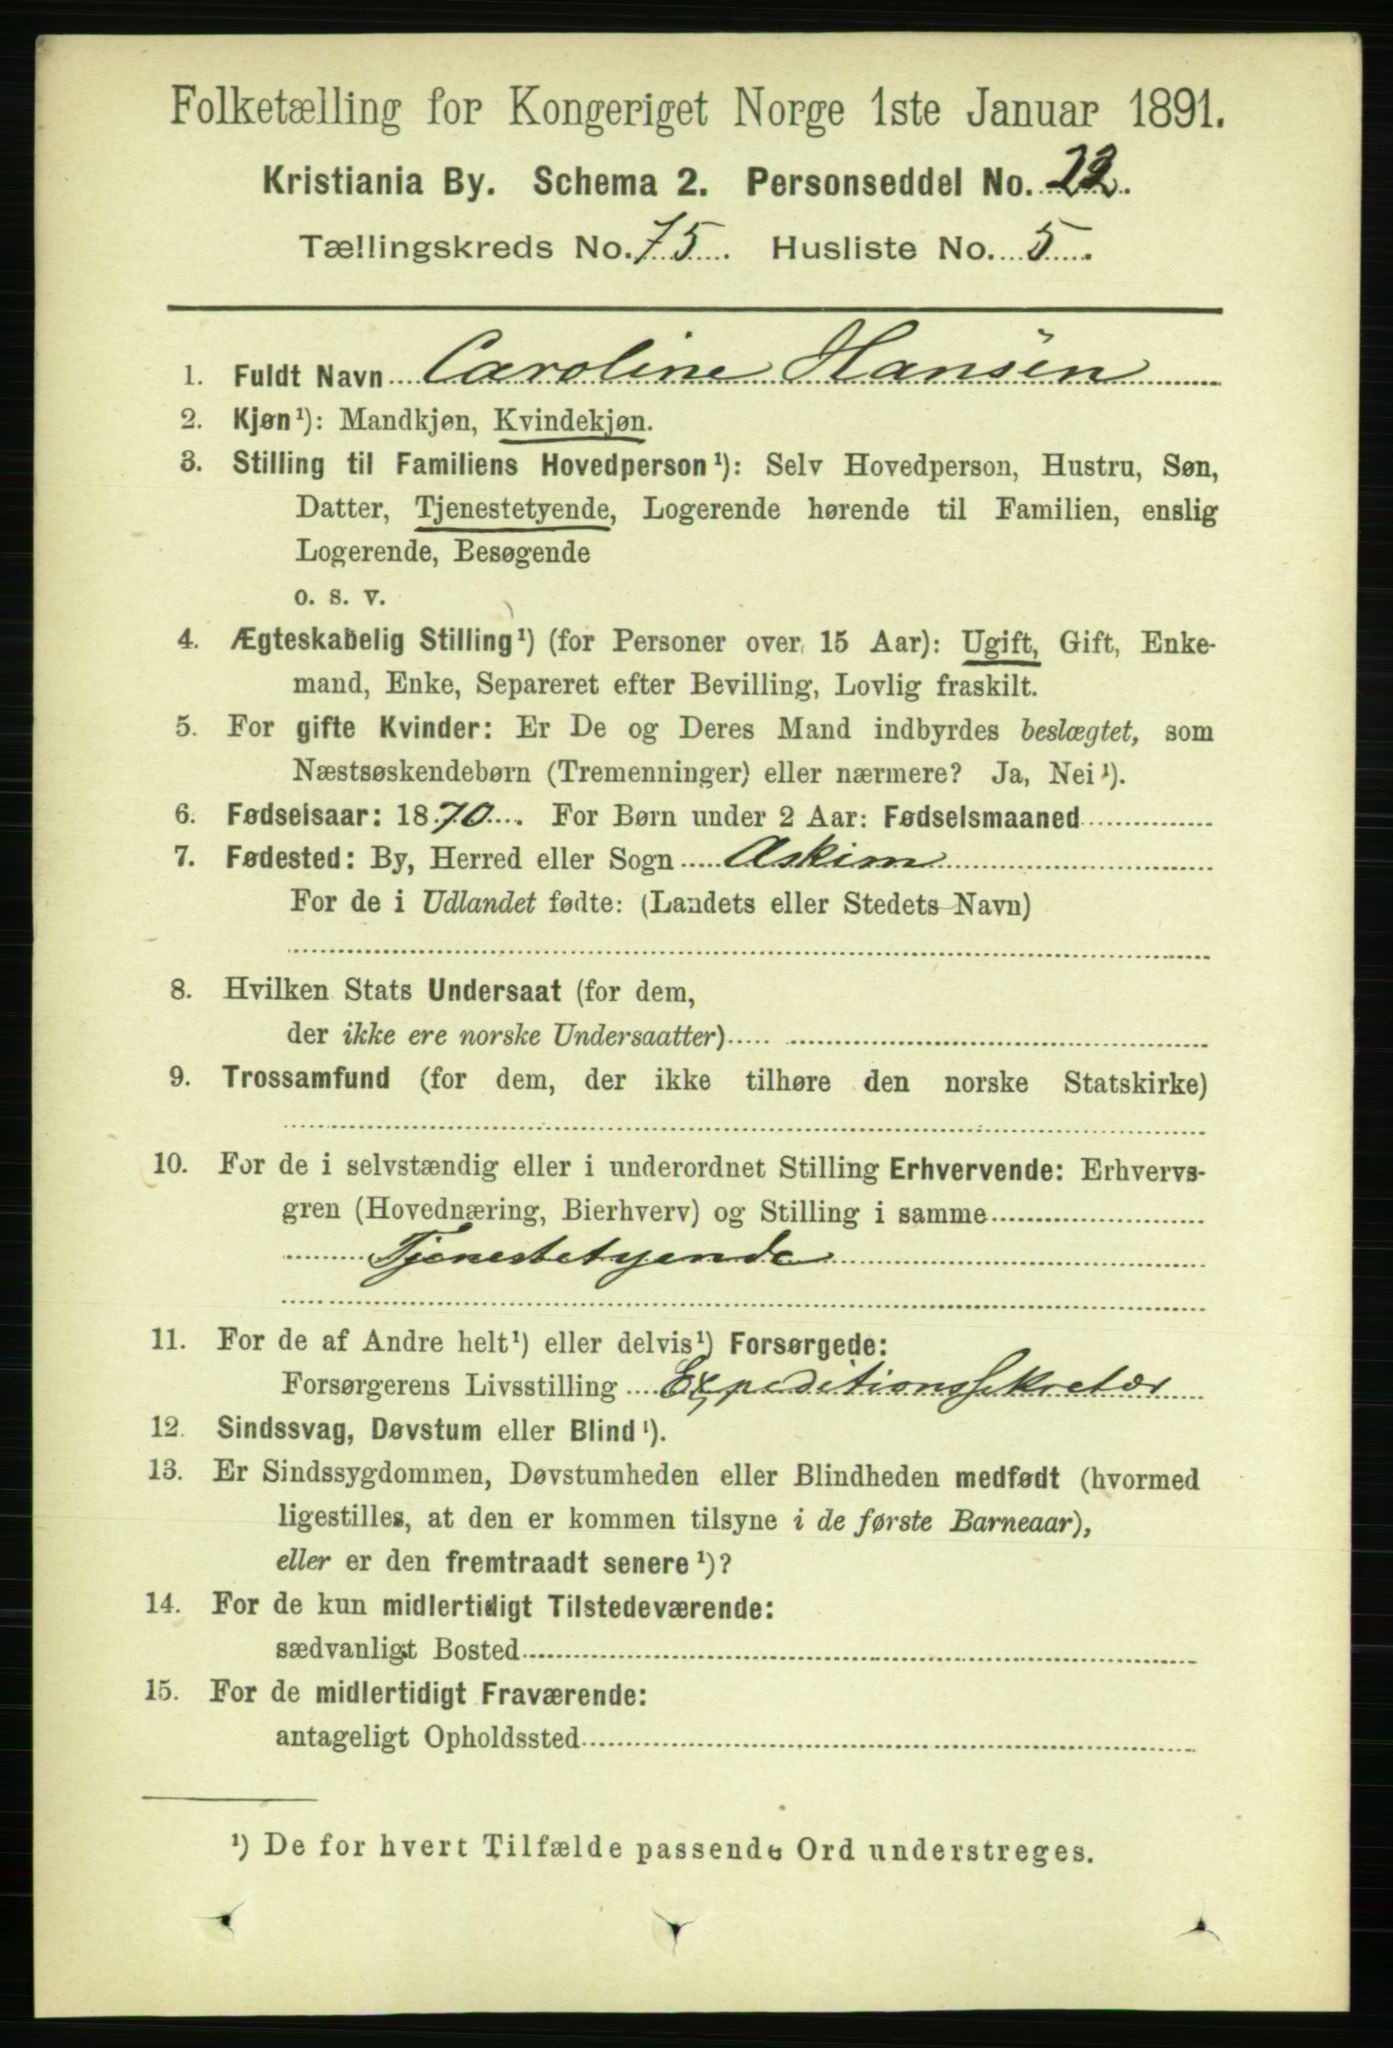 Folketælling for Kongeriget Norge 1ste Januar 1891.
Kristiania By. Schema 2. Personseddel No. 22.
Tællingskreds No. 75. Husliste No. 5.
1. Fuldt Navn Caroline Hansen
2. Kjøn¹): Mandkjøn, Kvindekjøn.
3. Stilling til Familiens Hovedperson¹): Selv Hovedperson, Hustru, Søn,
Datter, Tjenestetyende, Logerende hørende til Familien, enslig
Logerende, Besøgende
o. s. v.
4. Ægteskabelig Stilling¹) (for Personer over 15 Aar): Ugift, Gift, Enke-
mand, Enke, Separeret efter Bevilling, Lovlig fraskilt.
5. For gifte Kvinder: Er De og Deres Mand indbyrdes beslægtet, som
Næstsøskendebørn (Tremenninger) eller nærmere? Ja, Nei¹).
6. Fødselsaar: 1870. For Børn under 2 Aar: Fødselsmaaned
7. Fødested: By, Herred eller Sogn Askim
For de i Udlandet fødte: (Landets eller Stedets Navn)
8. Hvilken Stats Undersaat (for dem,
der ikke ere norske Undersaatter)
9. Trossamfund (for dem, der ikke tilhøre den norske Statskirke)
10. For de i selvstændig eller i underordnet Stilling Erhvervende: Erhvervs-
gren (Hovednæring, Bierhverv) og Stilling i samme
Tjenestetyende
11. For de af Andre helt¹) eller delvis¹) Forsørgede:
Forsørgerens Livsstilling Expeditionssekretær
12. Sindssvag, Døvstum eller Blind¹).
13. Er Sindssygdommen, Døvstumheden eller Blindheden medfødt (hvormed
ligestilles, at den er kommen tilsyne i de første Barneaar),
eller er den fremtraadt senere¹)?
14. For de kun midlertidigt Tilstedeværende:
sædvanligt Bosted
15. For de midlertidigt Fraværende:
antageligt Opholdssted
¹) De for hvert Tilfælde passende Ord understreges.